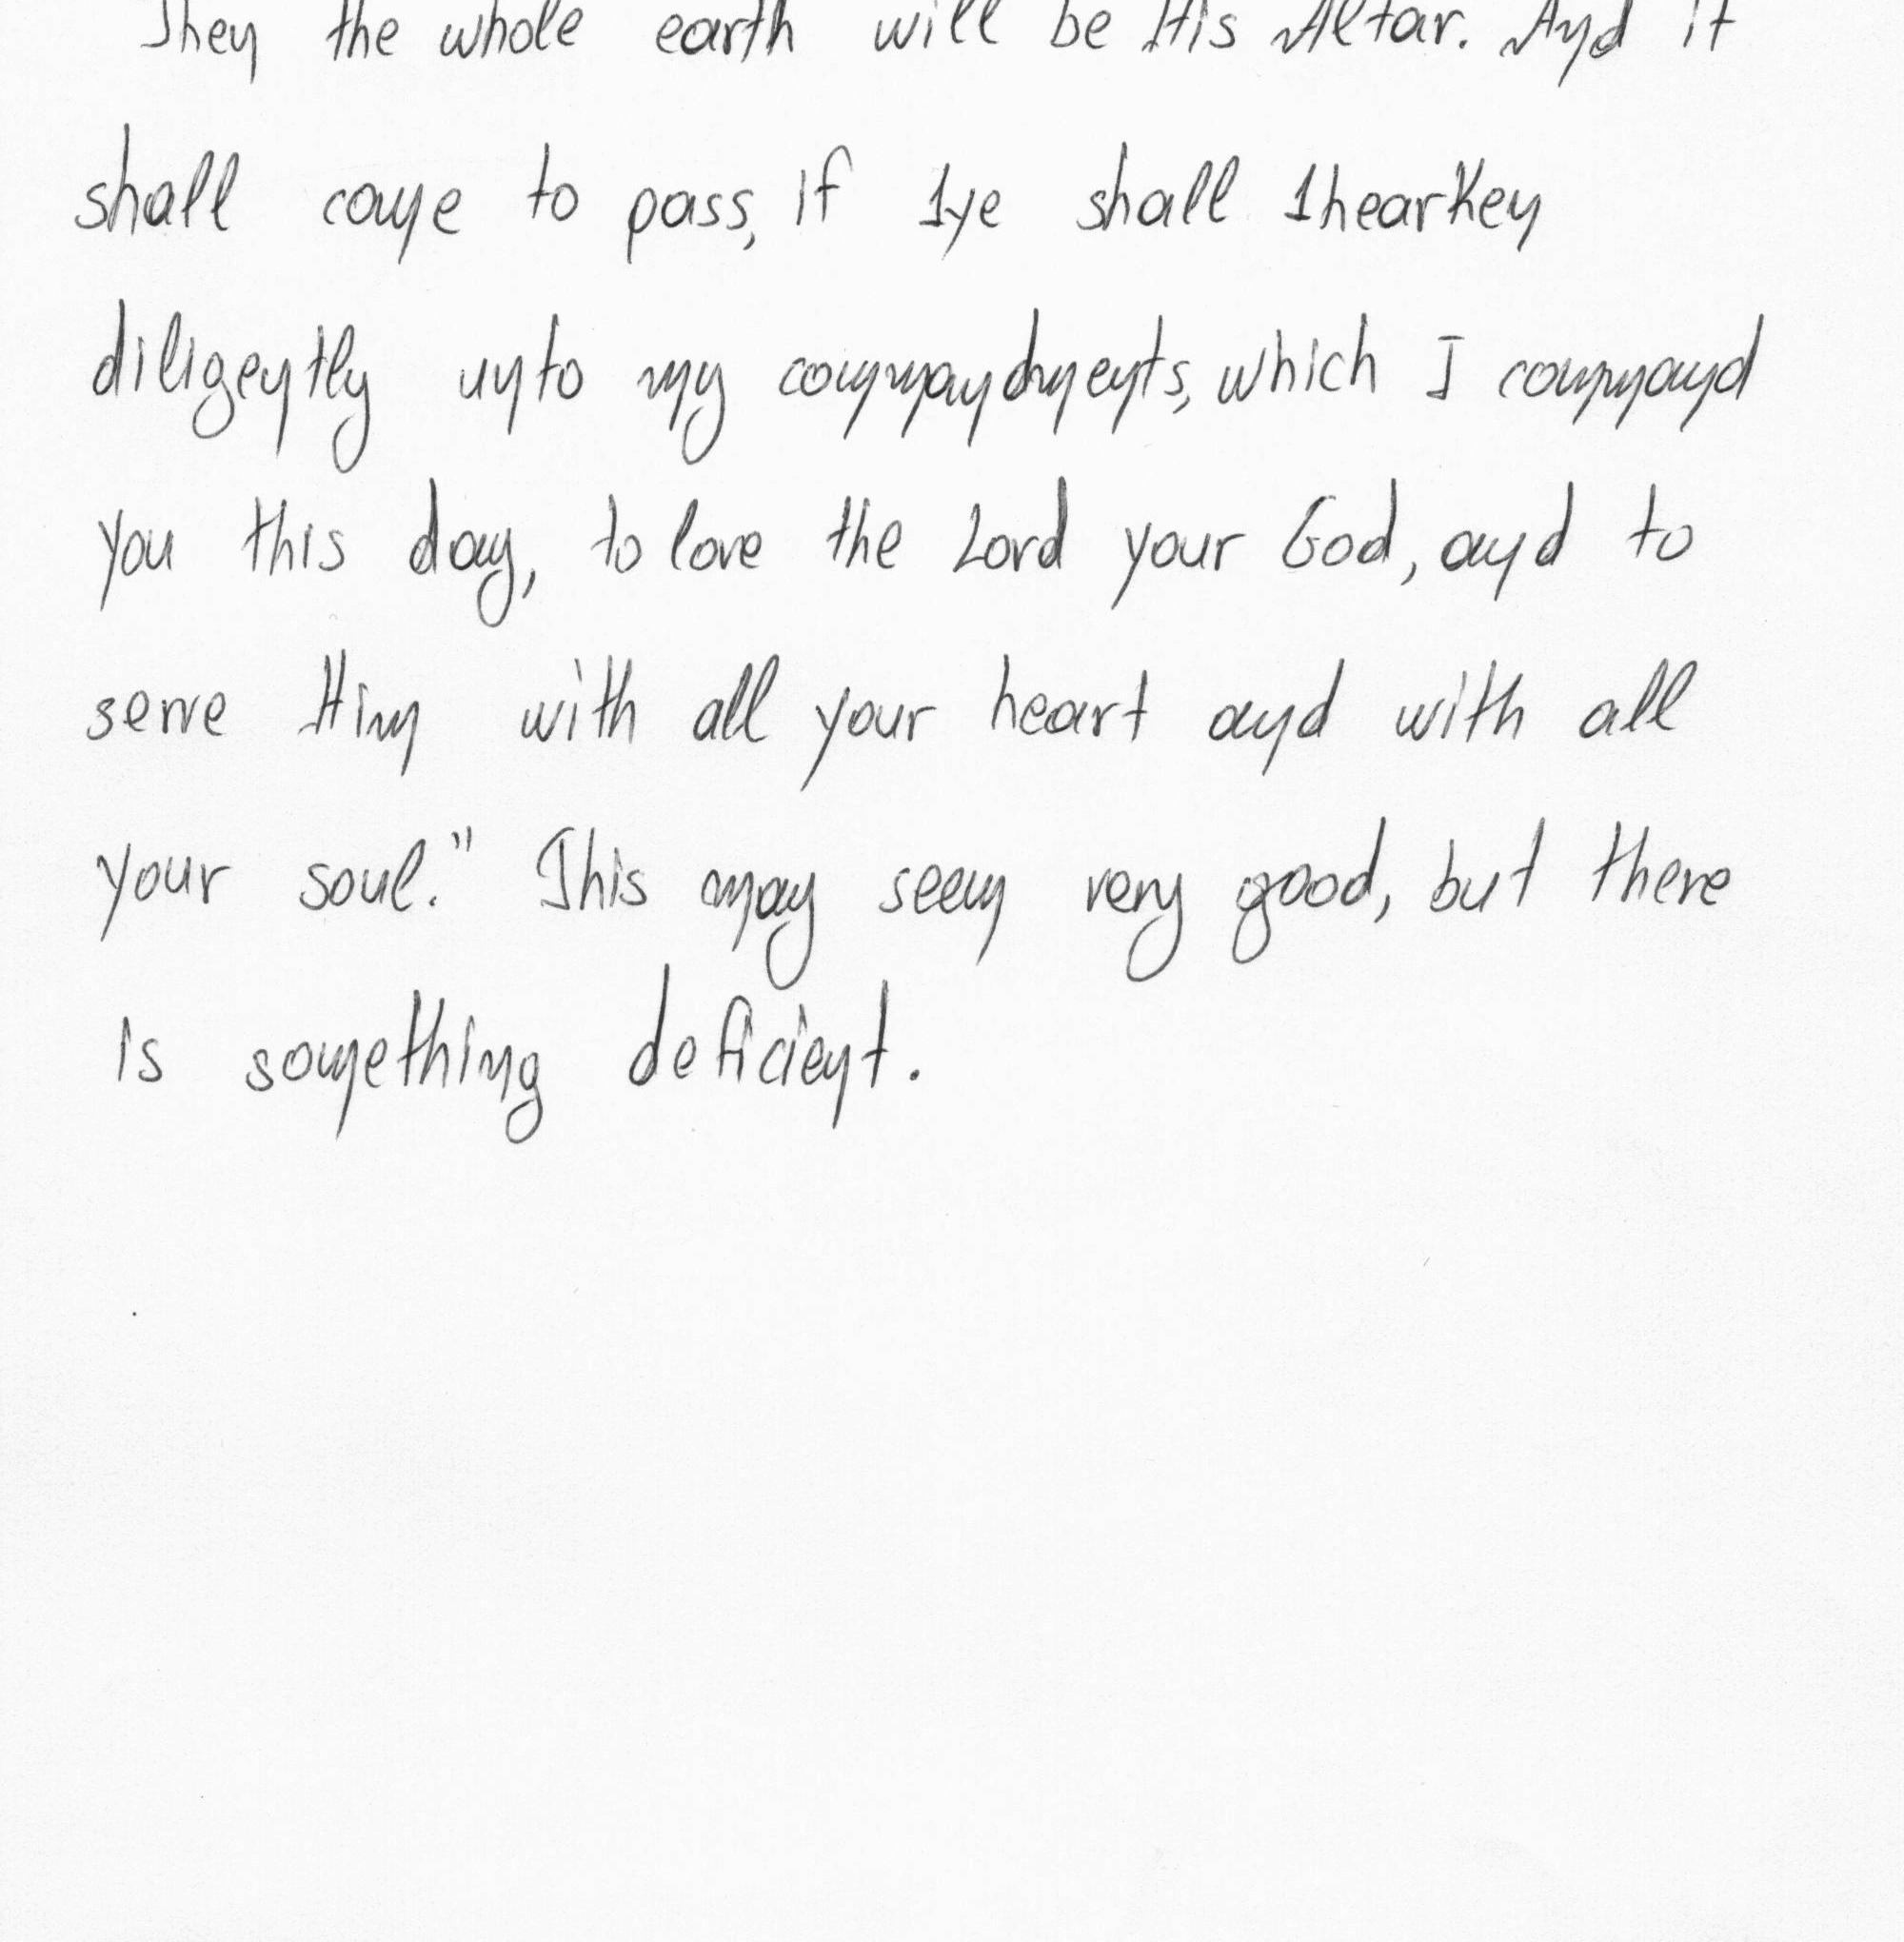 Then the whole earth will be His Altar. And it
shall come to pass, if 1ye shall 1hearken
diligently unto my commandments, which I command
you this day, to love the Lord your God, and to
serve Him with all your heart and with all
your soul." This may seem very good, but there
is something deficient.